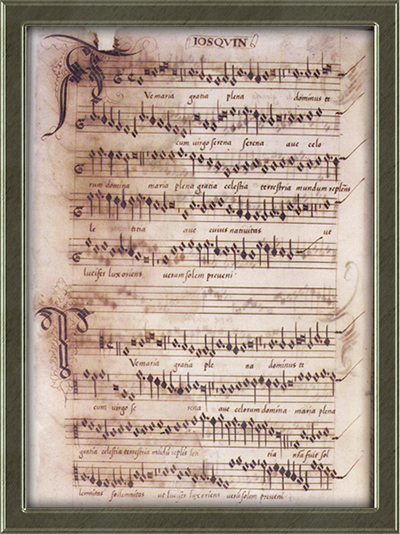 IOSQVIN
Ve maria gratia plena dominus te
cum virgo serena serena aue celo
rum domina maria plena gratia celestia terrestria mundum replens
le titia aue cuius natiuitas ut
lucifer lux oriens uerum solem preueni
Ve maria gratia ple na dominus te
cum virgo se rena aue celorum domina maria plena
gratia celestia terrestria mundū replēs
lemnitas sollemnitas ut lucifer lux oriens uerū solem preueni